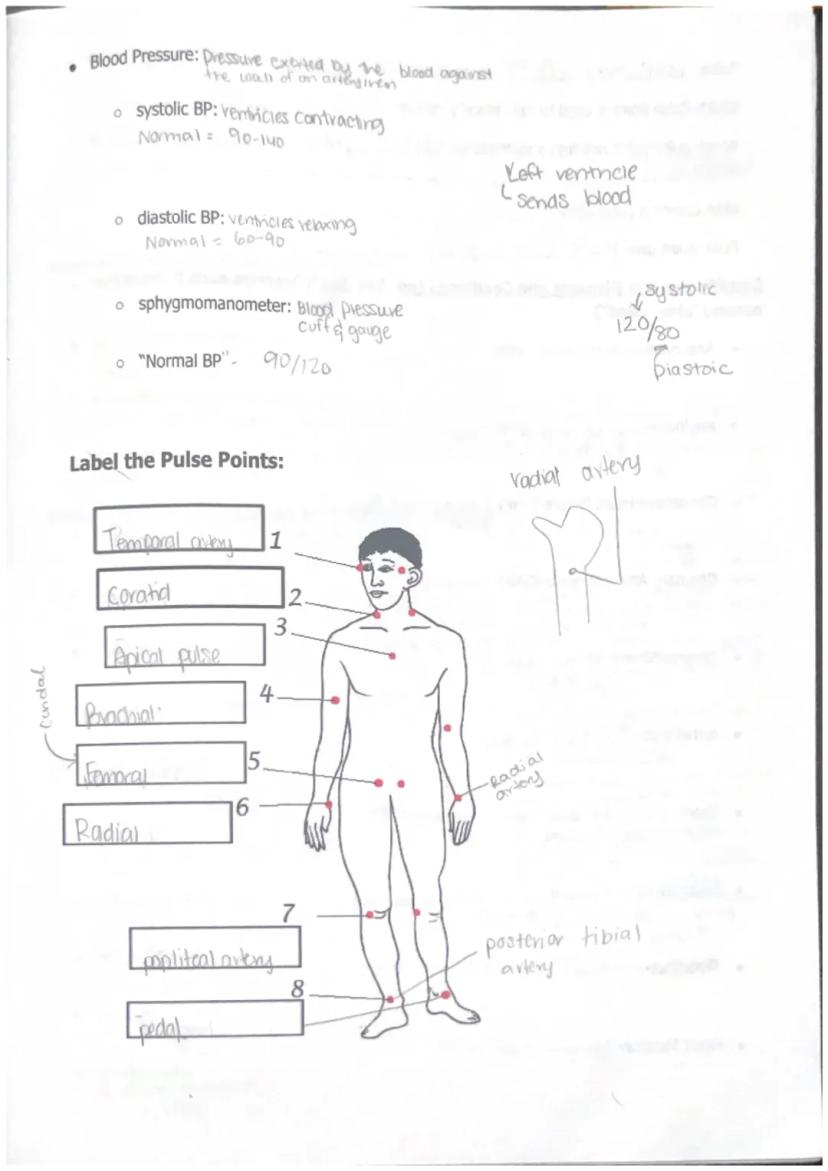 • Blood Pressure: Pressure exerted by the blood against
the wall of an artery/vein
o systolic BP: ventricles contracting
Normal = 90-140
Left ventricle
↳ sends blood
o diastolic BP: ventricles relaxing
Normal = 60-90
o sphygmomanometer: Blood pressure
cuff & gauge
systolic
120/80
Diastoic
o "Normal BP" - 90/120
Label the Pulse Points:
radial artery
Temporal artery 1
Coratid 2
Apical pulse 3
Brachial 4
Femoral 5
Radial 6
Radial
artery
7
popliteal artery
posterior tibial
artery
8
pedal